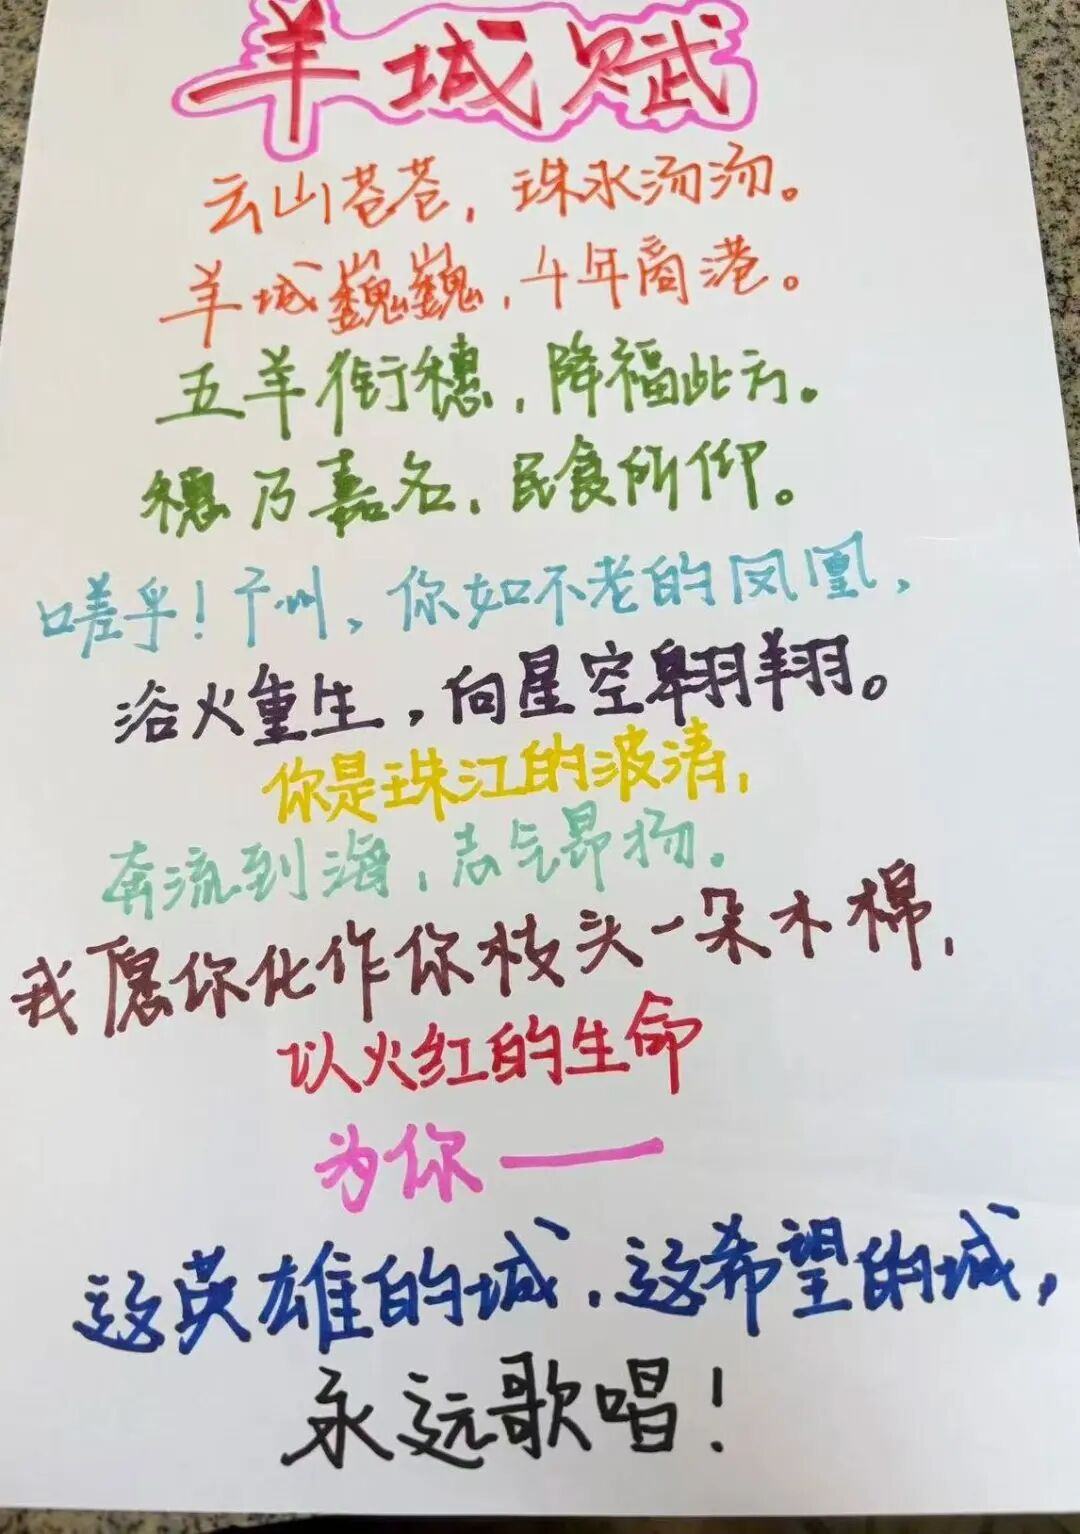 羊城赋
云山苍苍，珠水汤汤。
羊城巍巍，千年商港。
五羊衔穗，降福此方。
穗乃嘉名，民食所仰。
嗟乎！广州，你如不老的凤凰，
浴火重生，向星空翱翔。
你是珠江的波清，
奔流到海，志气昂扬。
我愿你化作你枝头一朵木棉，
以火红的生命
为你——
这英雄的城，这希望的城，
永远歌唱！